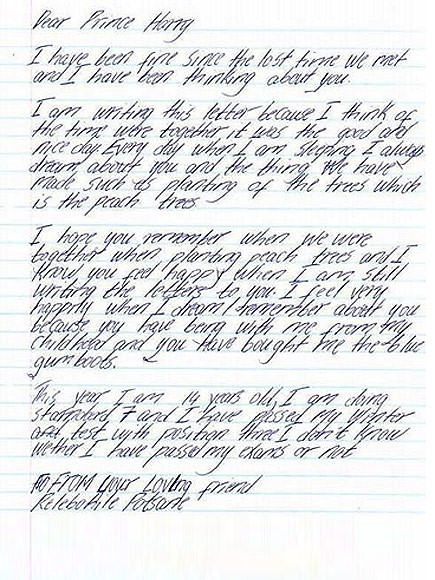 Dear Prince Harry
I have been fine since the last time we met
and I have been thinking about you.
I am writing this letter because I think of
the time were together it was the good and
nice day. Every day when I am sleeping I always
dream about you and the thing we have
made such as planting of the trees which
is the peach trees
I hope you remember when we were
together when planting peach trees and I
know you feel happy when I am still
writing the letters to you. I feel very
happily when I dream remember about you
because you have being with me from my
childhood and you have bought me the blue
gumboots.
This year I am 14 years old, I am doing
standard 7 and I have passed my winter
test with position three I don't know
wether I have passed my exams or not
FROM your Loving friend
Relebohile Potsane